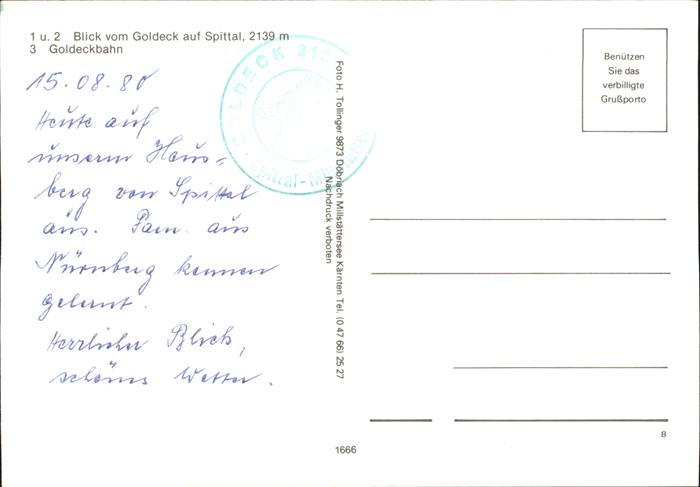 1 u. 2 Blick vom Goldeck auf Spittal, 2139 m
3 Goldeckbahn
15.08.80
Heute auf
unserm Haus=
berg von Spittal
aus. Fam. aus
Nürnberg kennen
gelernt.
Herrlicher Blick,
schöns Wetter.
GOLDECK
Spittal-
Foto H. Tollinger 9873 Döbriach Millstättersee Kärnten Tel. (0 47 66) 25 27
Nachdruck verboten
Benützen
Sie das
verbilligte
Grußporto
8
1666